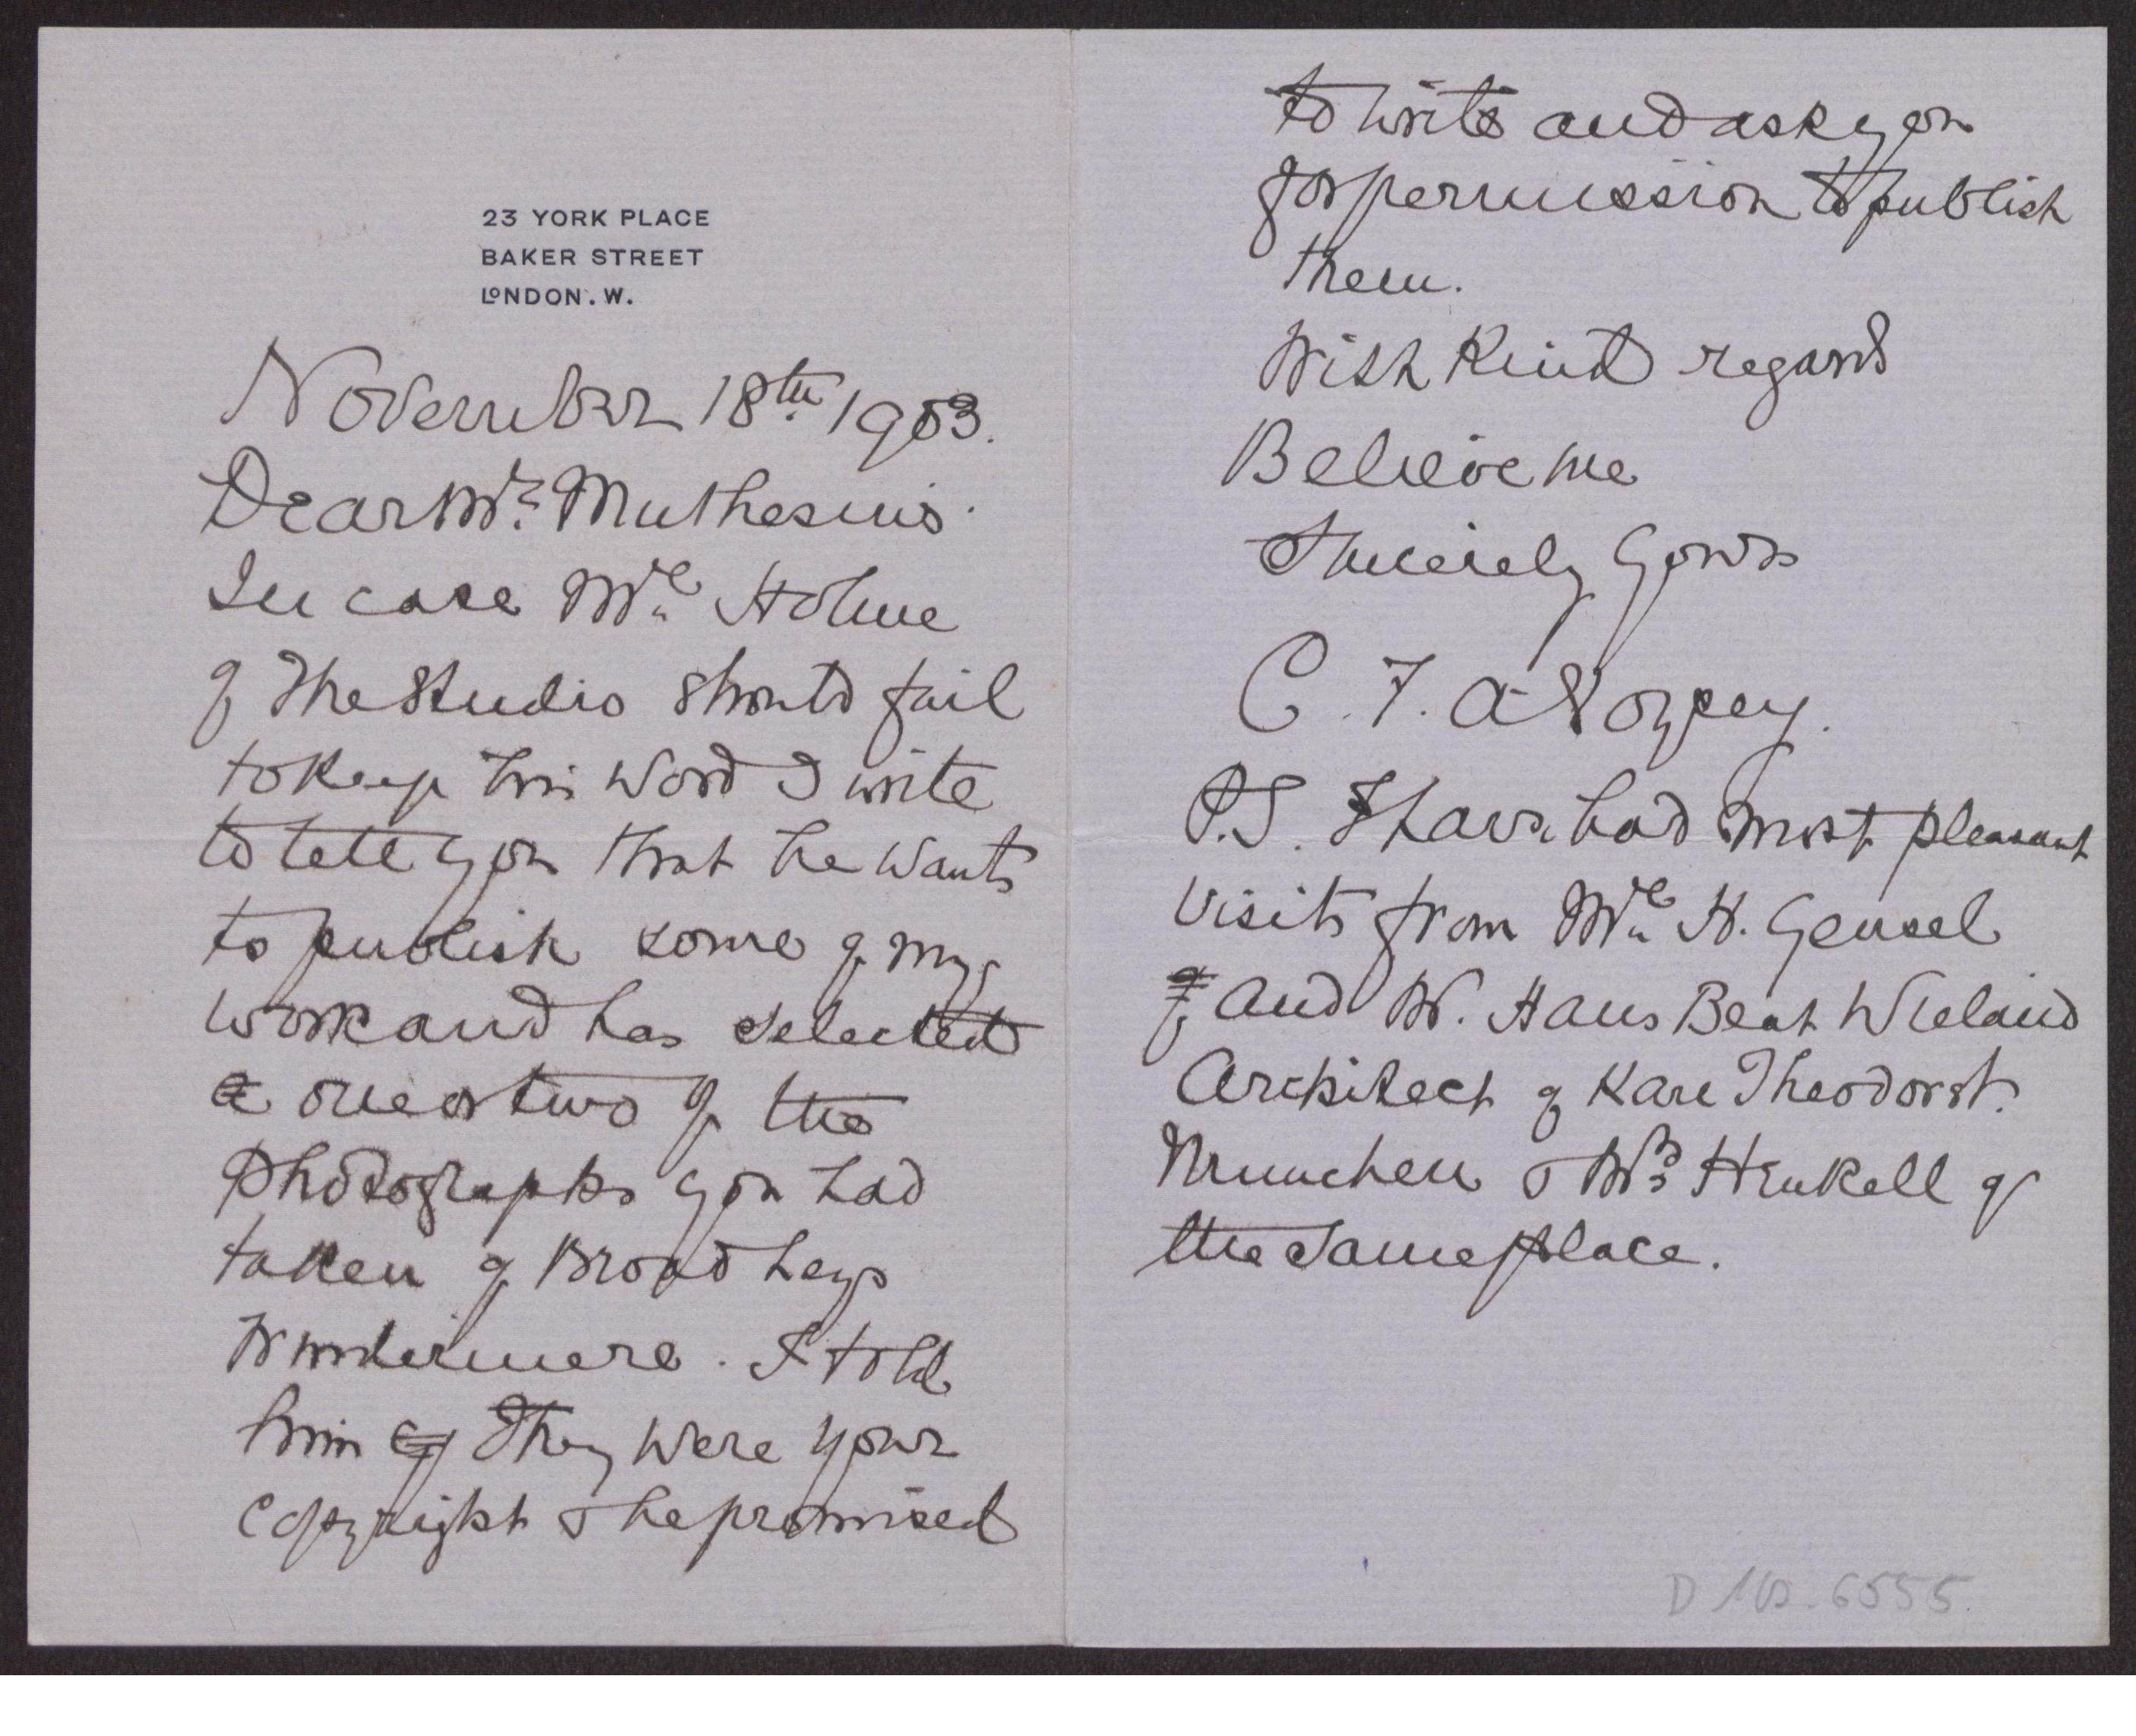 23 YORK PLACE
BAKER STREET
LONDON. W.
November 18th. 1903.
Dear Mr. Muthesius.
In case Mr. Holme
of The Studio should fail
to keep his word I write
to tell you that he wants
to publish some of my
work and has selected
one or two of the
photographs you had
taken of Broad Leys
Windermere. I told
him they were your
copyright & he promised
to write and ask you
for permission to publish
them.
With Kind regards
Believe me
Sincerely Yours
C. F. A Voysey.
P.S. I have had most pleasant
visits from Mr. H. Gensel
and W. Hans Beat Wieland
Architect of Karl Theodorst.
Munchen & Mrs Henkell of
the same place.
D 102-6555.